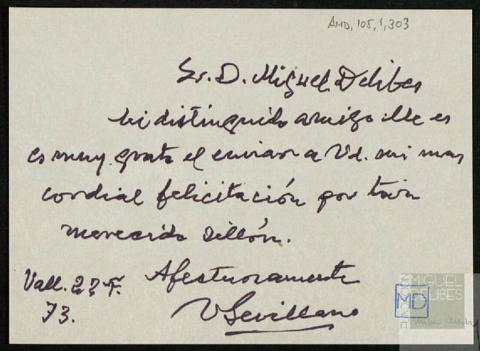 AMD, 105, 1, 303
Sr. D. Miguel Delibes
Mi distinguido amigo: Me es
es muy grato el enviar a Vd. mi mas
cordial felicitación por tan
merecido sillón.
Afectuosamente
Vall. 27-F.
73.
VSevillano
MIGUEL
DELIBES
MD